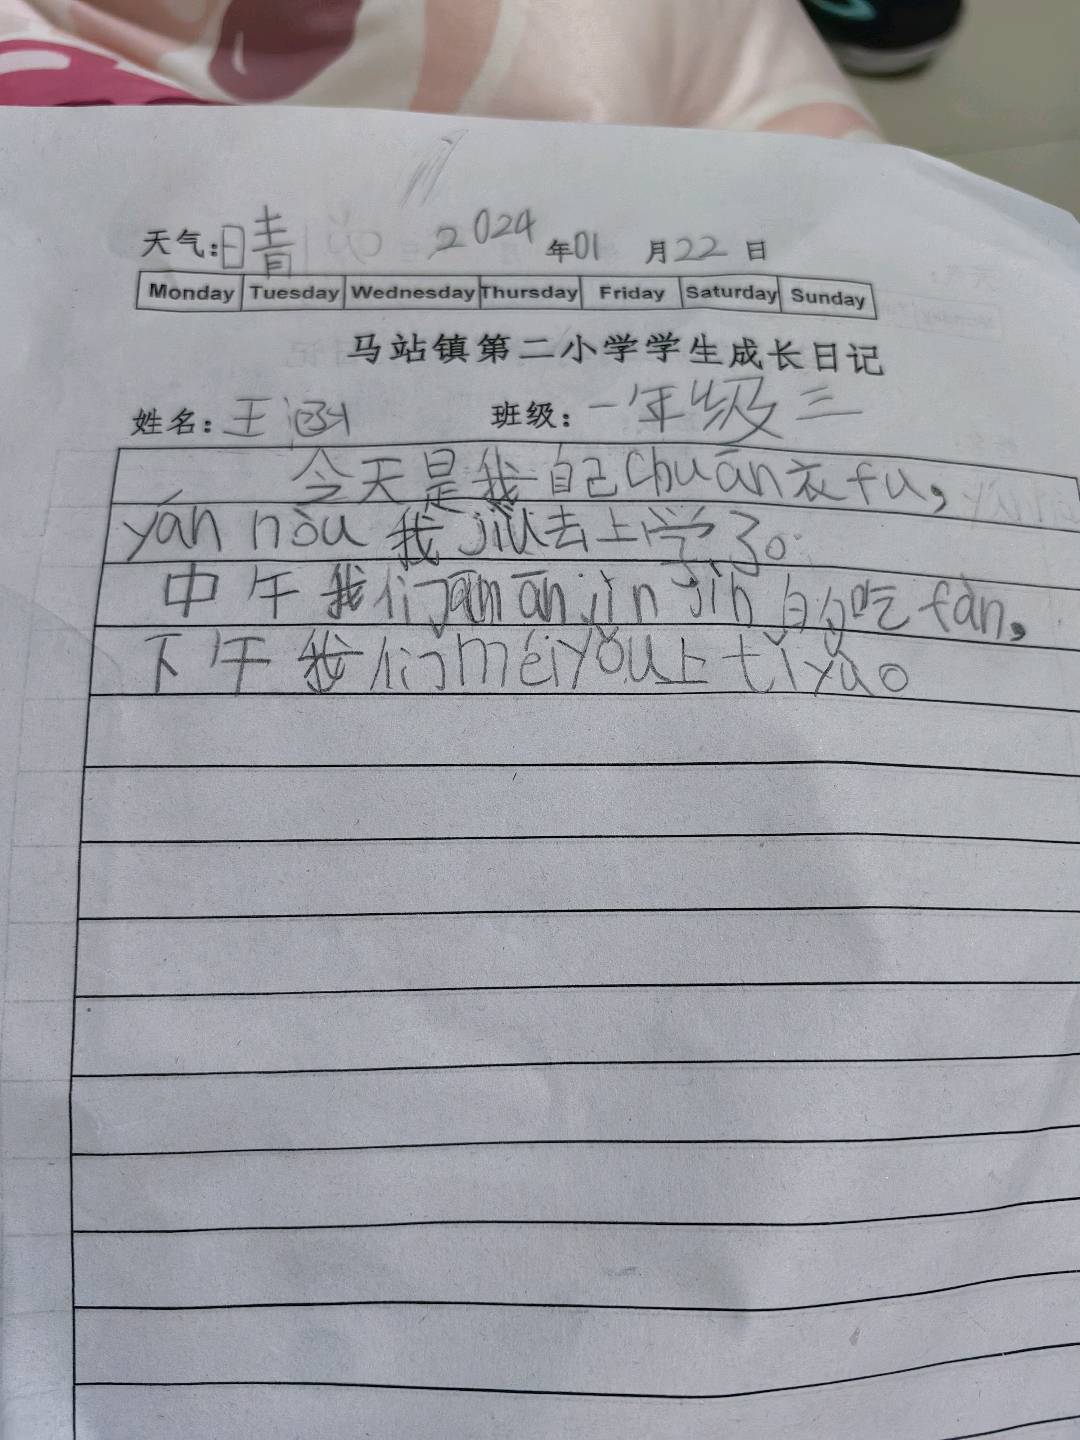 天气:晴 2024年01月22日
Monday Tuesday Wednesday Thursday Friday Saturday Sunday
马站镇第二小学学生成长日记
姓名:王涵 班级:一年级三
今天是我自己chuān衣fu,
yán hòu我jiù去上学了。
中午我们ānān jìn jìn的吃fàn,
下午我们méiyǒu上tǐyù。